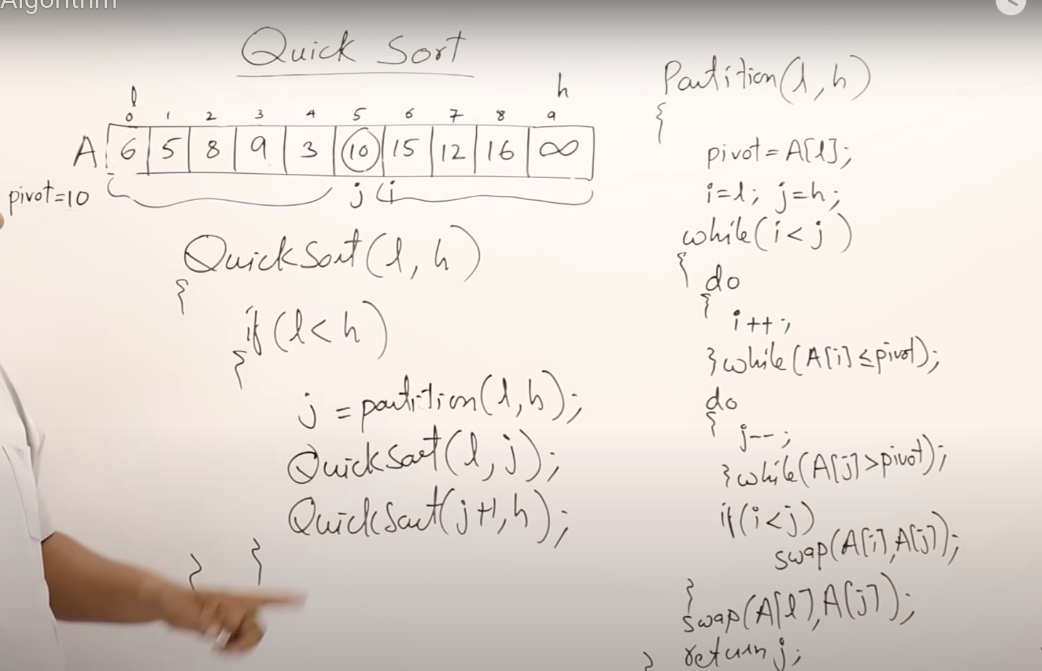 Algorithm
Quick Sort
l h
0 1 2 3 4 5 6 7 8 9
A 6 5 8 9 3 10 15 12 16 ∞
pivot=10 j i
QuickSort(l, h)
{
if(l<h)
{
j = partition(l,h);
QuickSort(l, j);
QuickSort(j+1,h);
}
}
Partition(l,h)
{
pivot=A[l];
i=l; j=h;
while(i<j)
{ do
{
i++;
}while(A[i]≤pivot);
do
{
j--;
}while(A[j]>pivot);
if(i<j)
swap(A[i],A[j]);
}
swap(A[l],A[j]);
return j;
}